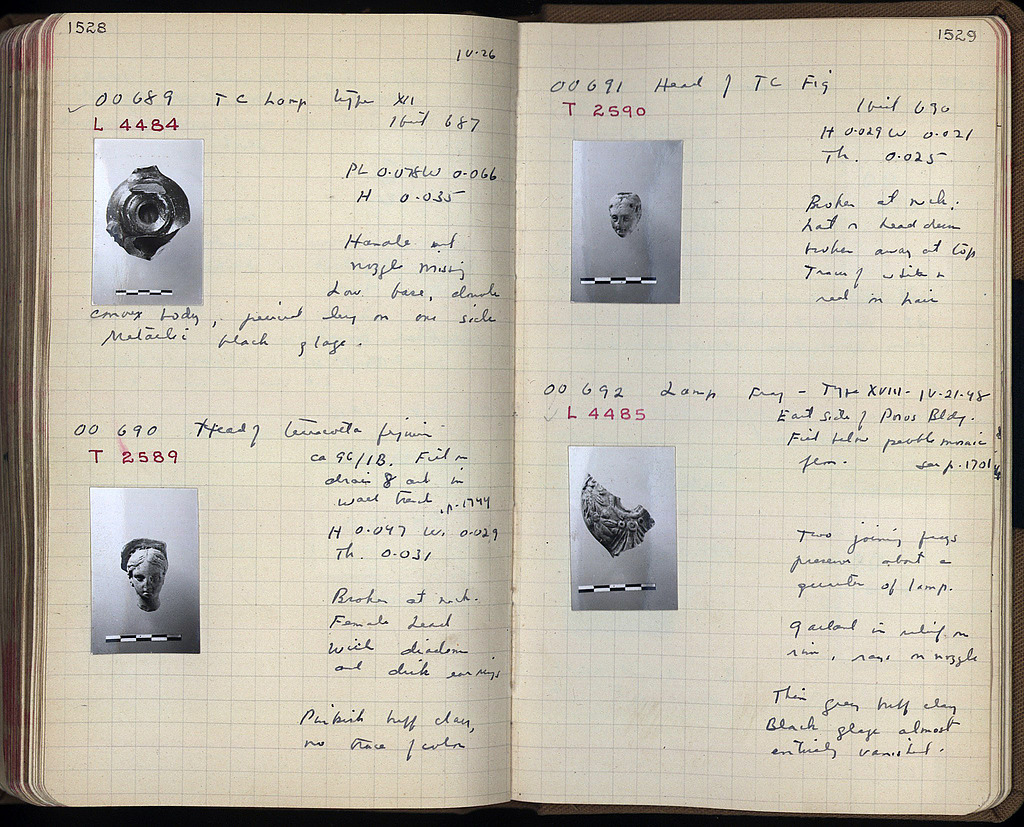 1528
IV-26
OO 689 TC Lamp Type XI
L 4484
687
PL 0.078 W 0.066
H 0.035
Handle and
nozzle missing
Low base, double
convex body, pierced lug on one side
Metallic black glaze.
OO 690 Head of terracotta figurine
T 2589
ca 96/1B.
drain 8 and in
p. 1744
H 0.047 W. 0.029
Th. 0.031
Broken at neck.
Female head
with diadem
and disk earrings
Pinkish buff clay,
no trace of color
1529
OO 691 Head of TC Fig
T 2590
690
H 0.029 W 0.021
Th. 0.025
Broken at neck.
head
broken away at top
Traces of white &
red in hair
OO 692 Lamp Frag - Type XVIII - IV-21-48
L 4485
East side of Poros Bldg.
below pebble mosaic
floor. see p. 1701
Two joining frags
preserve about a
quarter of lamp.
Garland in relief on
rim, rays on nozzle
Thin grey buff clay
Black glaze almost
entirely vanished.